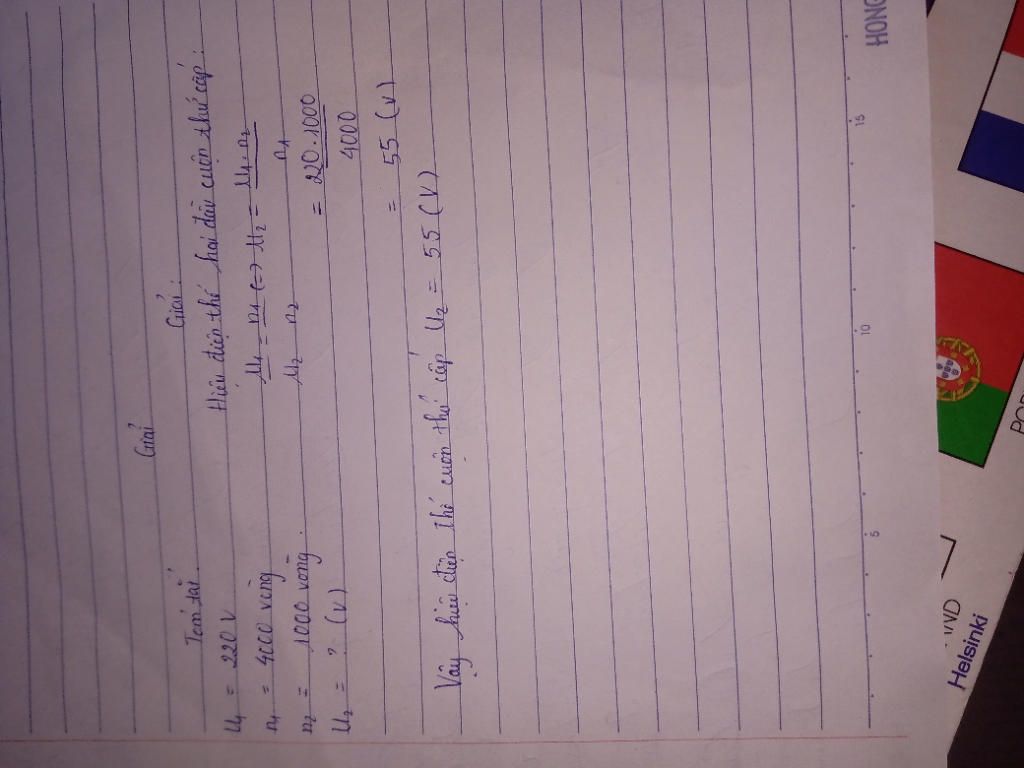 Giải
Tóm tắt.
Giải:
U₁ = 220 V
n₁ = 4000 vòng
n₂ = 1000 vòng.
U₂ = ? (V)
Hiệu điện thế hai đầu cuộn thứ cấp:
U₁/U₂ = n₁/n₂ <=> U₂ = U₁.n₂/n₁
= 220.1000/4000
= 55 (V)
Vậy hiệu điện thế cuộn thứ cấp U₂ = 55 (V)
5 10 15
HONG
Helsinki